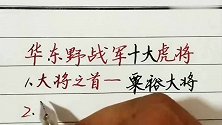 华东野战军十大虎将
1.大将之首一粟裕大将
2.